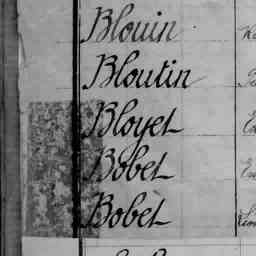 Blouin
Bloutin
Bloyet
Bobet
Bobet